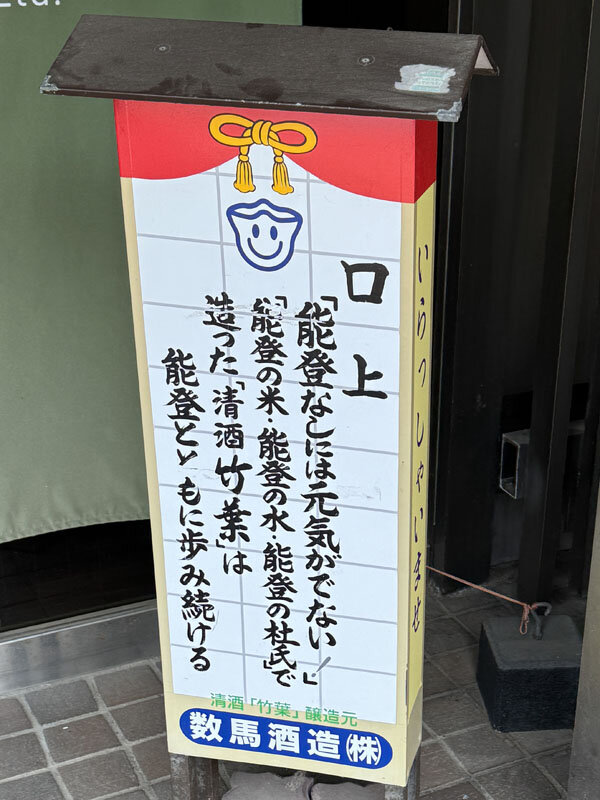 Ltd.
口上
「能登なしには元気がでない！」
「能登の米・能登の水・能登の杜氏」で
造った「清酒竹葉」は
能登とゝもに歩み続ける
清酒「竹葉」醸造元
数馬酒造㈱
いらっしゃいませ